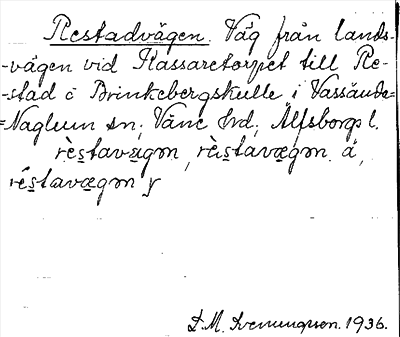 Restadvägen. Väg från lands-
-vägen vid Klassaretorpet till Re-
-stad o Brinkebergskulle i Vassända=
=Naglum sn; Väne hrd; Älfsborgs l.
rèstavægən, rèstavægən. á,
réstavægən y
D.M. Svenungsson. 1936.